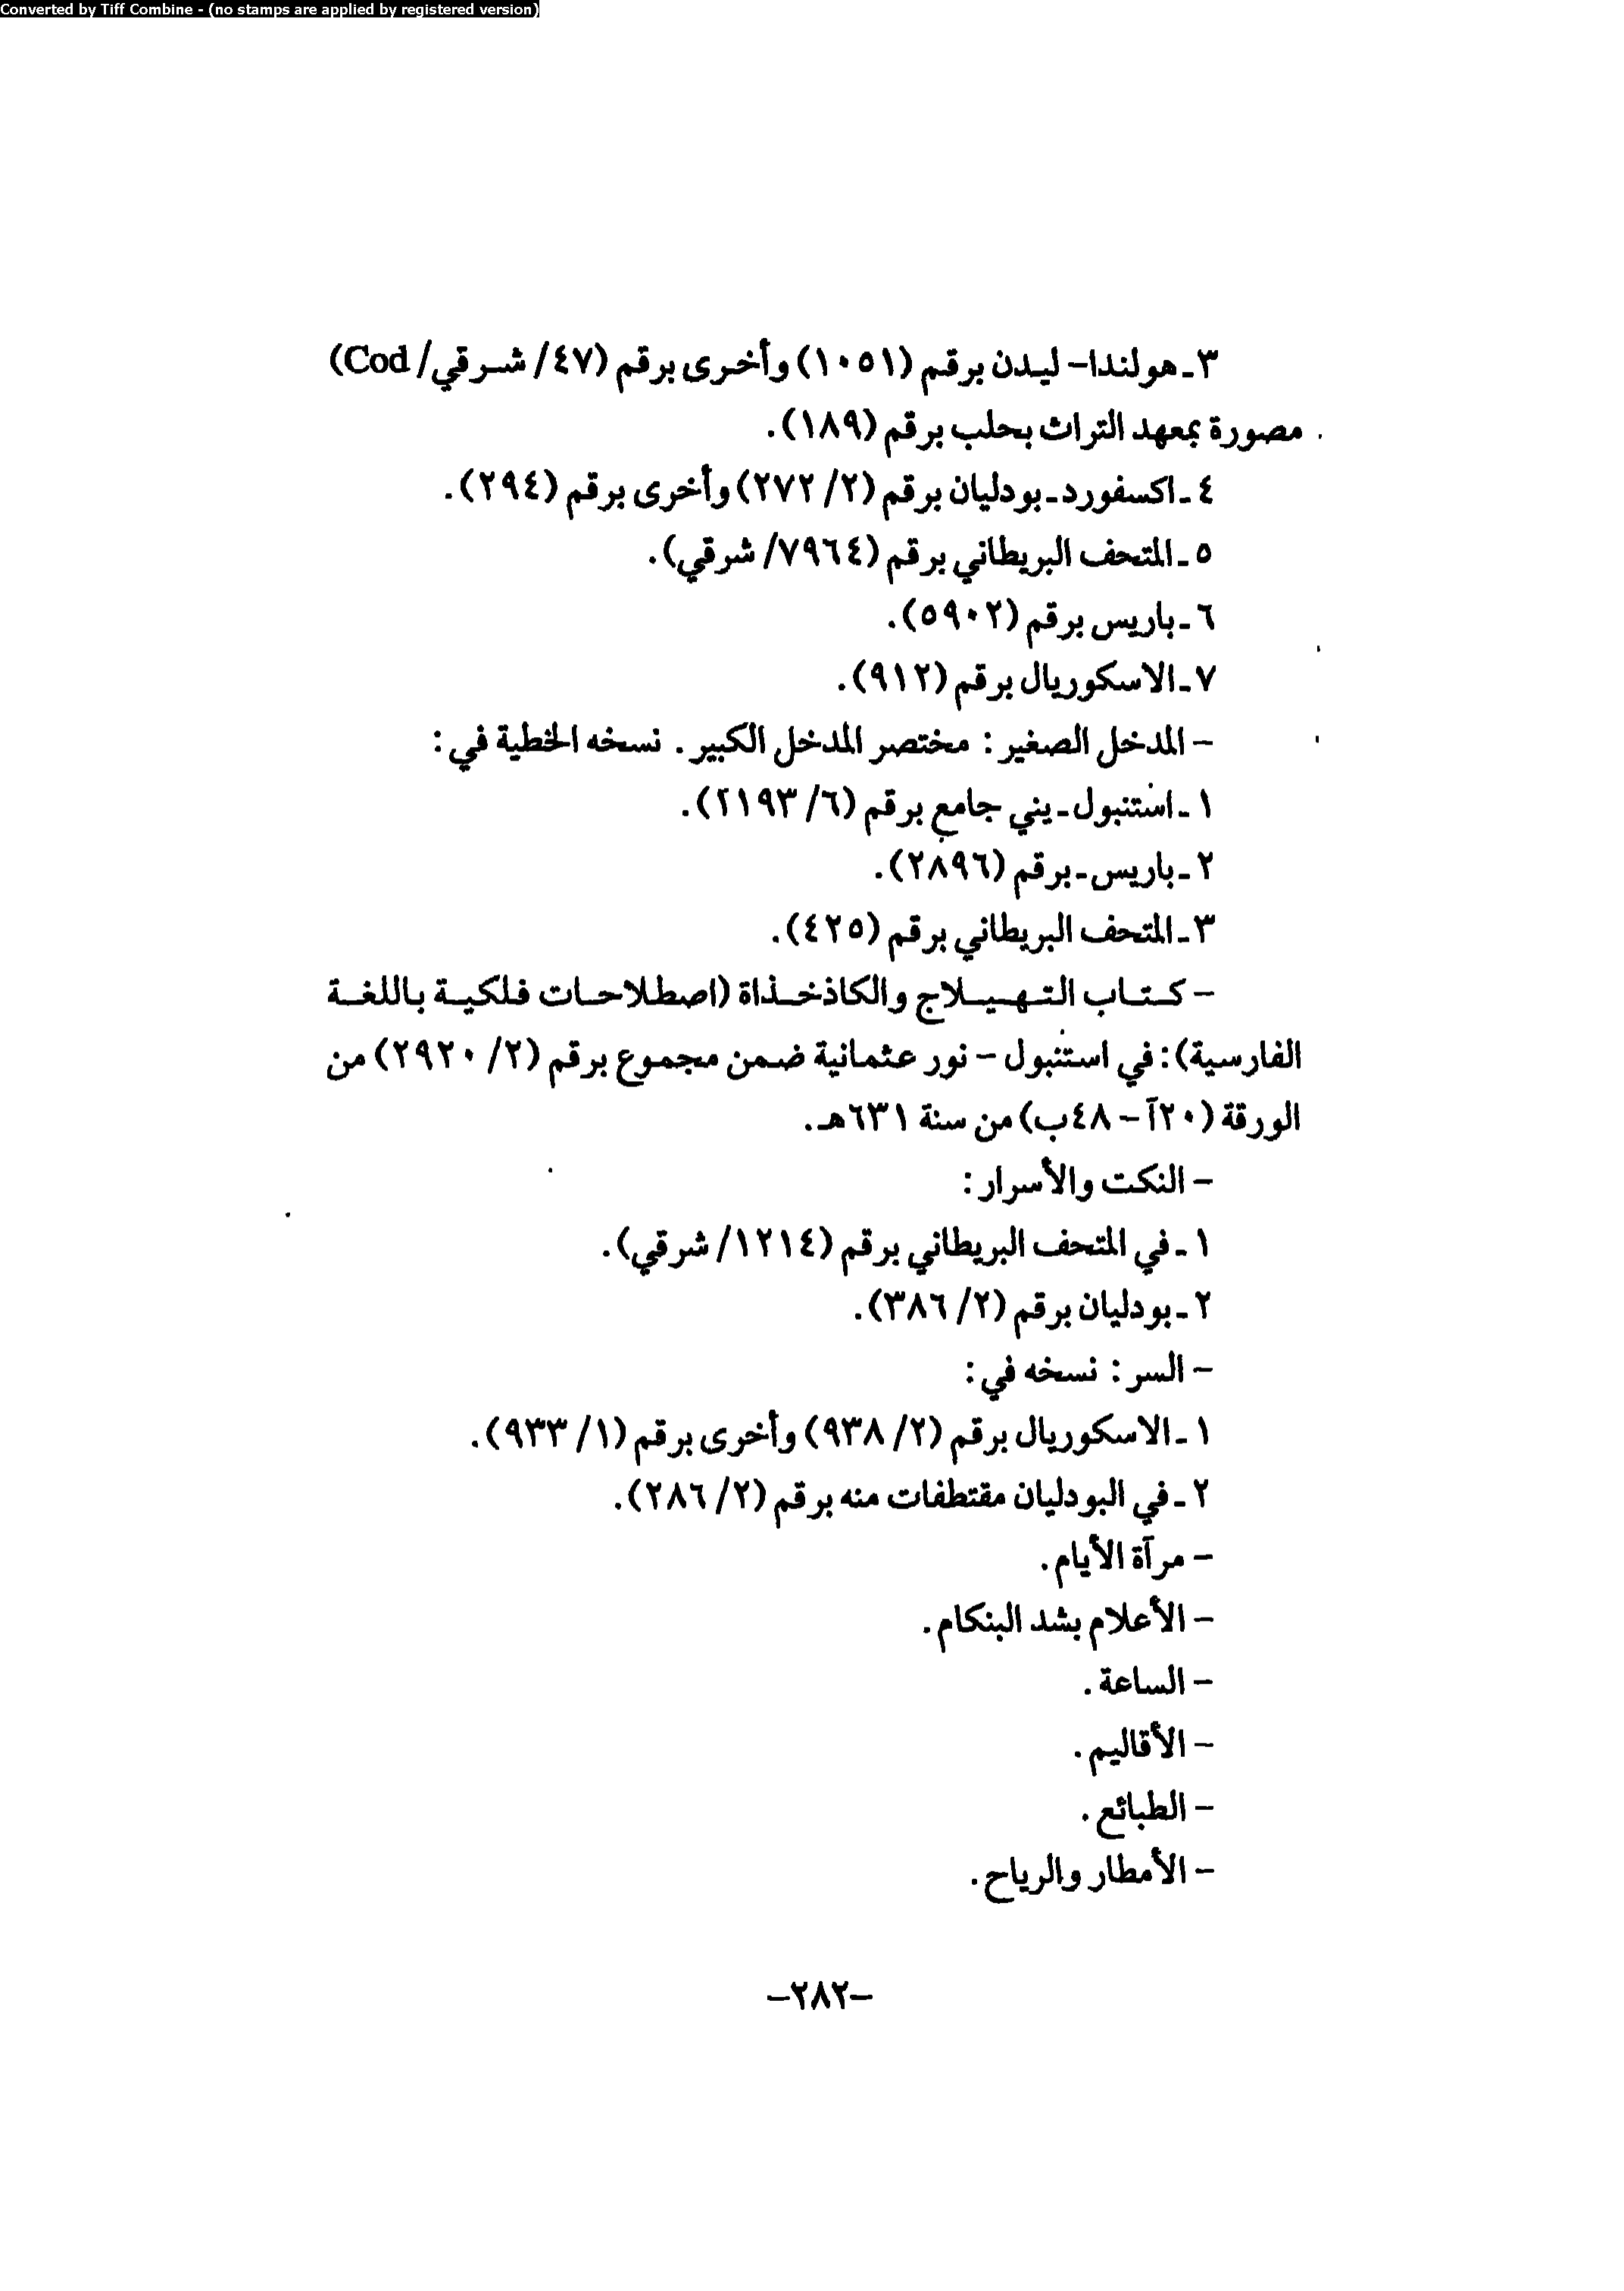 Converted by Tiff Combine - (no stamps are applied by registered version)
٣ـ هولندا- ليدن برقم (١٠٥١) وأخرى برقم (٤٧/ شرقي/ Cod)
مصورة بمعهد التراث بحلب برقم (١٨٩).
٤ ـ اكسفورد ـ بودليان برقم (٢/ ٢٧٢) وأخرى برقم (٢٩٤).
٥ ـ المتحف البريطاني برقم (٧٩٦٤/ شرقي).
٦ ـ باريس برقم (٥٩٠٢).
٧ ـ الاسكوريال برقم (٩١٢).
- المدخل الصغير: مختصر المدخل الكبير. نسخه الخطية في:
١ ـ استنبول ـ يني جامع برقم (٦/ ٢١٩٣).
٢ ـ باريس ـ برقم (٢٨٩٦).
٣ ـ المتحف البريطاني برقم (٤٢٥).
- كتاب التهيلاج والكاذخذاة (اصطلاحات فلكية باللغة
الفارسية): في استنبول - نور عثمانية ضمن مجموع برقم (٢/ ٢٩٢٠) من
الورقة (٢٠آ - ٤٨ب) من سنة ٦٣١هـ.
- النكت والأسرار:
١ ـ في المتحف البريطاني برقم (١٢١٤/ شرقي).
٢ ـ بودليان برقم (٢/ ٣٨٦).
- السر: نسخه في:
١ ـ الاسكوريال برقم (٢/ ٩٣٨) وأخرى برقم (١/ ٩٣٣).
٢ ـ في البودليان مقتطفات منه برقم (٢/ ٢٨٦).
- مرآة الأيام.
- الأعلام بشد البنكام.
- الساعة.
- الأقاليم.
- الطبائع.
- الأمطار والرياح.
-٢٨٢-